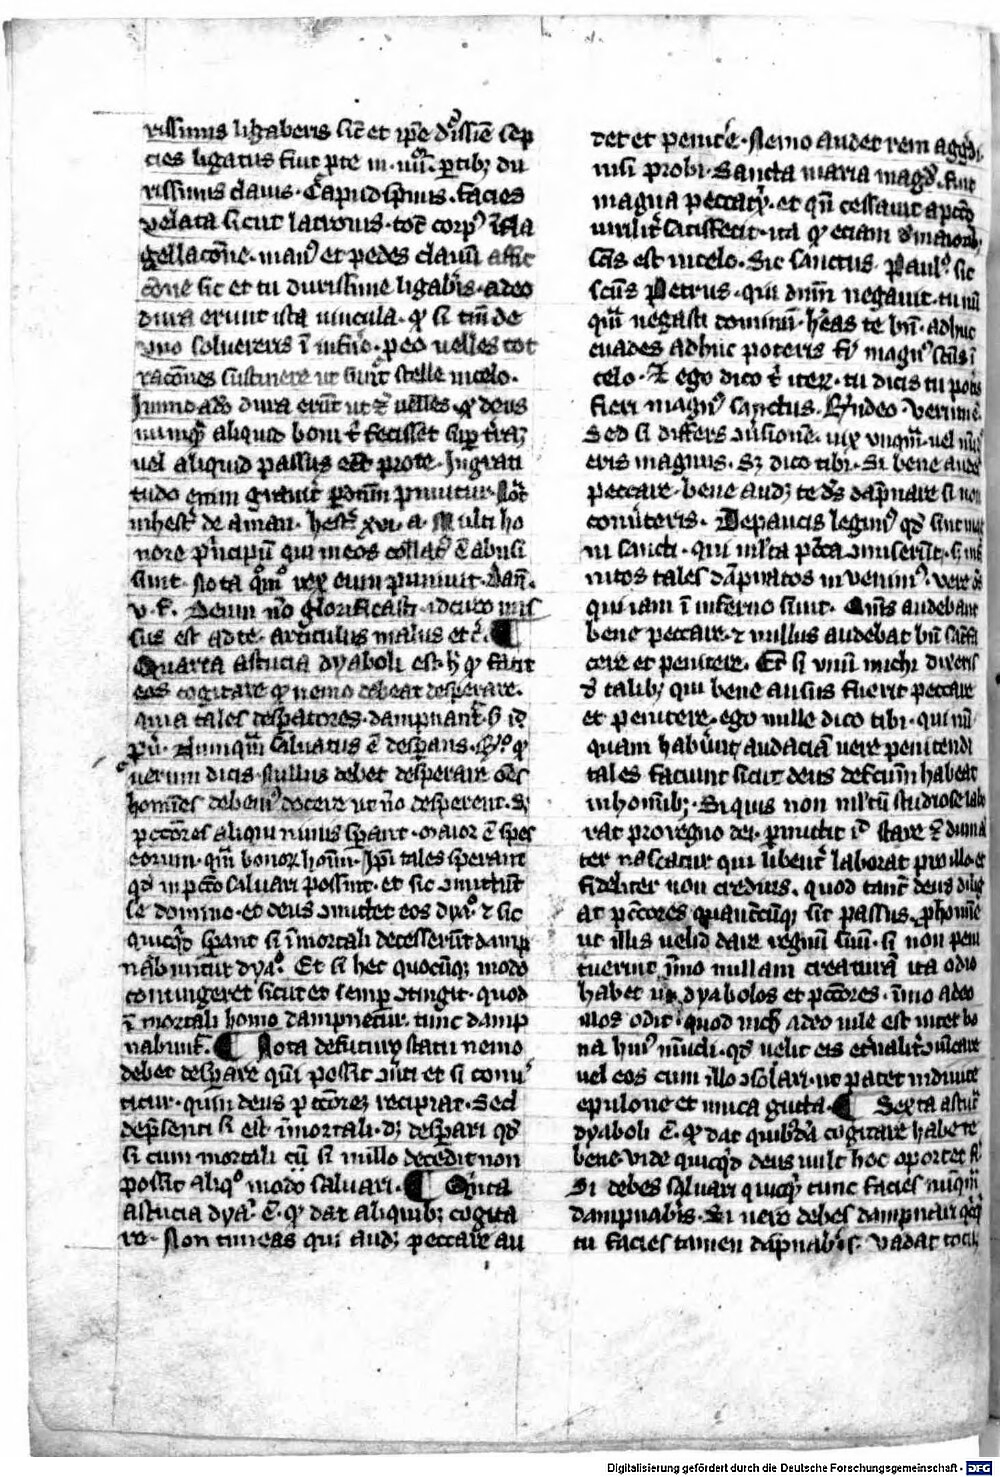 rissimis ligaberis sic̄ et ip̄e d͛issīe sep
cies ligatus fuit p̱te in .iiii. ꝑtib; du
rissimis clauis. Caput spinis. facies
velata sicut latronis. tot̄ corp᷒ ī fla
gellac̄one. man᷒ et pedes clauū affic
c̄one sic et tu durissime ligab̾is. adeo
dura erunt ista uincula. ꝙ si tm̄ de
vno soluereris ī infer̄o. p̱ eo uelles tot
rac̄ones sustinere ut sunt stelle in celo.
Immo adeo dura erūt ut uelles. ꝙ deus
numꝙ̄ aliquid boni t̾ fecisset sup̱ t̾rā
uel aliquid passus eēt pro te. Ingrati
tudo enim grauit̾ punitur. Not̄
in hest̾ de aman. hest̾. xvi. a. Multi bo
nore p͛ncipū qui in eos collat᷒ ē abusi
sunt. Nota qūo rex eum puniuit. Dan̄.
v. f. Deum n̄o glorificasti. idcirco mis
sus est ad te. articulus malus et c̄. ¶
Quarta astucia dyaboli est. h̾ ꝙ facit
eos cogitare ꝙ nemo debeat desperare.
quia tales despatores. dampnant̾. 
Numquā saluatus ē despans. ꝙ
uerum dicis. Nullus debet desperare oēs
homīes debem᷒ docere ut n̄o desperent. S;
pecc̄ores aliqui nimis sp̱ant. maior ē spes
eorum. qm̄ bonoꝝ hoīm. Ipsi tales sperant
qd̾ in pcc̄o saluari possint. et sic ɔmittūt
se domino. et deus ɔmittet eos dya. ⁊ sic
quicqd̾ sp̱ant si ī mortali decesserūt damp
nabuntur dya. Et si hec quocūq; modo
contingeret sicut et semp̱ ɔtingit. quod
ī mortali homo dampnetur. tunc damp
nabunt̾. ¶ Nota de futuro statu nemo
debet despare qm̄ possit ɔu̾ti et si conu̾
titur. quin deus pecc̄oreꝫ recipiat. Sed
de p̄senti si est ī mortali. d; despari qd̾
si cum mortali si in illo decedit non
possit aliq᷒ modo saluari. ¶ Qui̾ta
astucia dya. ē. ꝙ dat aliquib; cogita
re. Non timeas qui aud; peccare au
det et penit̾e. Nemo audet rem aggdi
nisi probi. Sancta maria magd̾. fuit
magna peccatx̾. et qn̄ cessauit a pcc̄o
uirilit̾ satisfecit. ita ꝙ eciam d̾ maiorib;
sc̄is est in celo. Sic sanctus Paul᷒. sic
sc̄us Petrus. qui dnm̄ negauit. tu nū
qm̄ negasti dominū. h̾eas te bn̄. adhuc
euades adhuc poteris fi̾ magn᷒ sc̄us ī
celo. Et ego dico t̾ iteꝝ. tu dicis tu pot̾is
fieri magn᷒ sanctus. Rn̄deo. verum ē.
Sed si differs ɔu̾sionē. uix vnqm̄. uel nū
eris magnus. S; dico tibi. Si bene audes
peccare. bene aud; te ds̾ dāpnare si non
conu̾teris. De paucis legim᷒ qd̾ sint mag
ni sancti. qui mlta pcc̄a ɔmiserūt. si in
nitos tales dāpnatos inuenim᷒. vere
qui iam ī inferno sunt. Omēs audebant
bene peccare. ⁊ nullus audebat bn̄ satisfa
cere et penitere. Et si vnū michi dixeris
d̾ talib; qui bene ausus fuerit peccare
et penitere. ego mille dico tibi. qui nū
quam habu̾int audaciā uere penitendi
tales faciunt sicut deus defectum habeat
in homīb;. Si quis non ml̄tū studiose labo
rat pro regno dei. p̱mittit stare
ter nascatur qui libent̾ laborat pro illo et
fideliter non credis. quod tant̾ deus dilig
at pcc̄ores quantūcūq; sit passus. p̱ hoīmē
ut illis uelit dare regnū suū. si non peni
tuerint īmo nullam creaturā ita odio
habet ut dyabolos et pcc̄ores. īmo adeo
illos odit. quod mch̾ adeo uile est inter bo
na hui᷒ mūdi. qd̾ uelit eis et̾nalit̾ ɔm̄care
uel eos cum illo ɔsolari. ut patet in diuite
epulone et mica gutta. ¶ Sexta astuc̾
dyaboli ē. ꝙ dat quibd̄a cogitare habe te
bene. vide quicqd̾ deus uult hoc oportet fi̾
Si debes saluari quicq; tunc facies nūqm̄
dampnab̾is. Si uero debes dampnari qcq;
tu facies tamen dāpnab̾is. vadat tociē
Digitalisierung gefördert durch die Deutsche Forschungsgemeinschaft - DFG